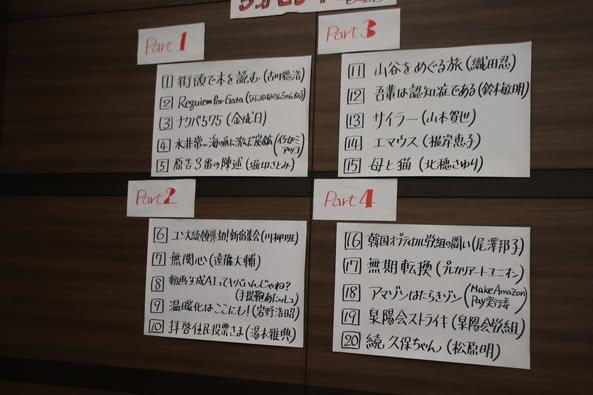 Part 1
1 街頭で本を読む (古川徳浩)
2 Requiem for Gaza
3 ナクバ575 (金成日)
4 水非常
5 原告3番の陳述 (堀切さとみ)
Part 2
6 ユン大統領弾劾!新宿集会 (川柳班)
7 無関心 (遠藤大輔)
8 動画生成AIってヤバいんじゃね?
(手提鞄あたっしゅ)
9 温暖化はここにも! (岩野浩昭)
10 拝啓住民投票さま (湯本雅典)
Part 3
11 山谷をめぐる旅 (織田忍)
12 吾輩は認知症である (鈴木敏明)
13 サイラー (山本智也)
14 エマウス (根岸恵子)
15 母と猫 (北穂さゆり)
Part 4
16 韓国オプティカル労組の闘い (尾澤邦子)
17 無期転換 (プレカリアートユニオン)
18 アマゾンはたらきゾン (Make Amazon
Pay実行委)
19 泉陽会ストライキ (泉陽会労組)
20 続 久保ちゃん (松原明)